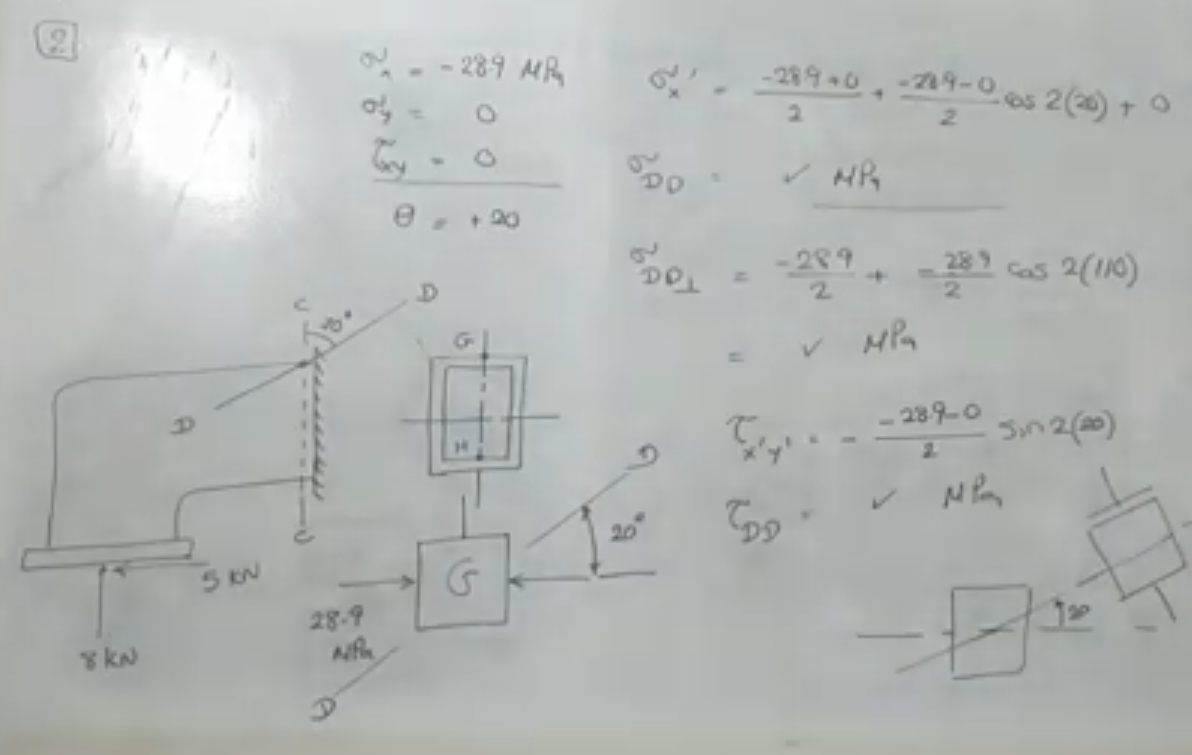 2
σx = -28.9 MPa
σy = 0
τxy = 0
θ = +20
σx' = (-28.9+0)/2 + (-28.9-0)/2 cos 2(20) + 0
σDD = ✓ MPa
σDD⊥ = -28.9/2 + -28.9/2 cos 2(110)
= ✓ MPa
τx'y' = - (-28.9-0)/2 sin 2(20)
τDD = ✓ MPa
C
D
D
C
5 kN
8 kN
G
H
G
28.9
MPa
D
20°
D
20